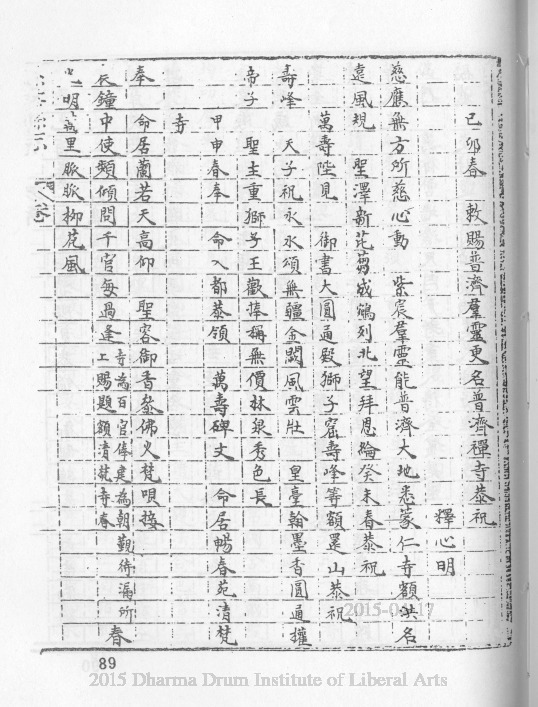 己卯春 敕賜普濟羣靈更名普濟禪寺恭祝
釋心明
慈應無方所慈心動 紫宸羣靈能普濟大地悉蒙仁寺額洪名
遠風規 聖澤新花蒭成鵷列北望拜恩綸癸未春恭祝
萬壽陛見 御書大圓通殿獅子窟壽峰等額還山恭祝
天子祝永永頌無疆金闕風雲壯 皇臺翰墨香圓通擢
壽峰
聖主重獅子王歡捧稱無價林泉秀色長
帝子
甲申春奉 命入都恭領 萬壽碑文 命居暢春苑清梵
寺
奉 命居蘭若天高仰 聖容御香發佛火梵唄接
天鐘中使頻傾問千官每過逢寺為百官俸建為朝覲待漏所 春
工賜題額清梵寺春
明萬里脈脈柳花風
89
2015-04-17
2015 Dharma Drum Institute of Liberal Arts